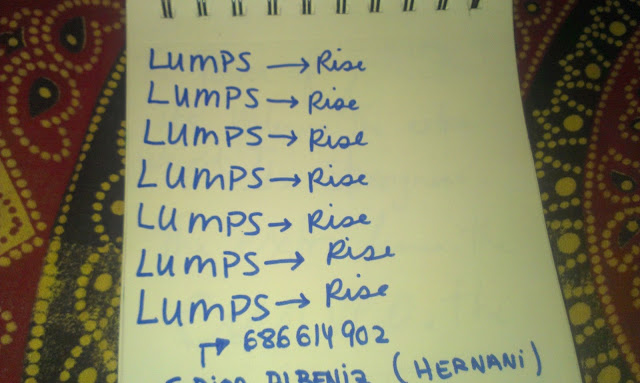 LUMPS → Rise
LUMPS → Rise
LUMPS → Rise
LUMPS → Rise
LUMPS → Rise
LUMPS → Rise
LUMPS → Rise
↱ 686614902
(HERNANI)